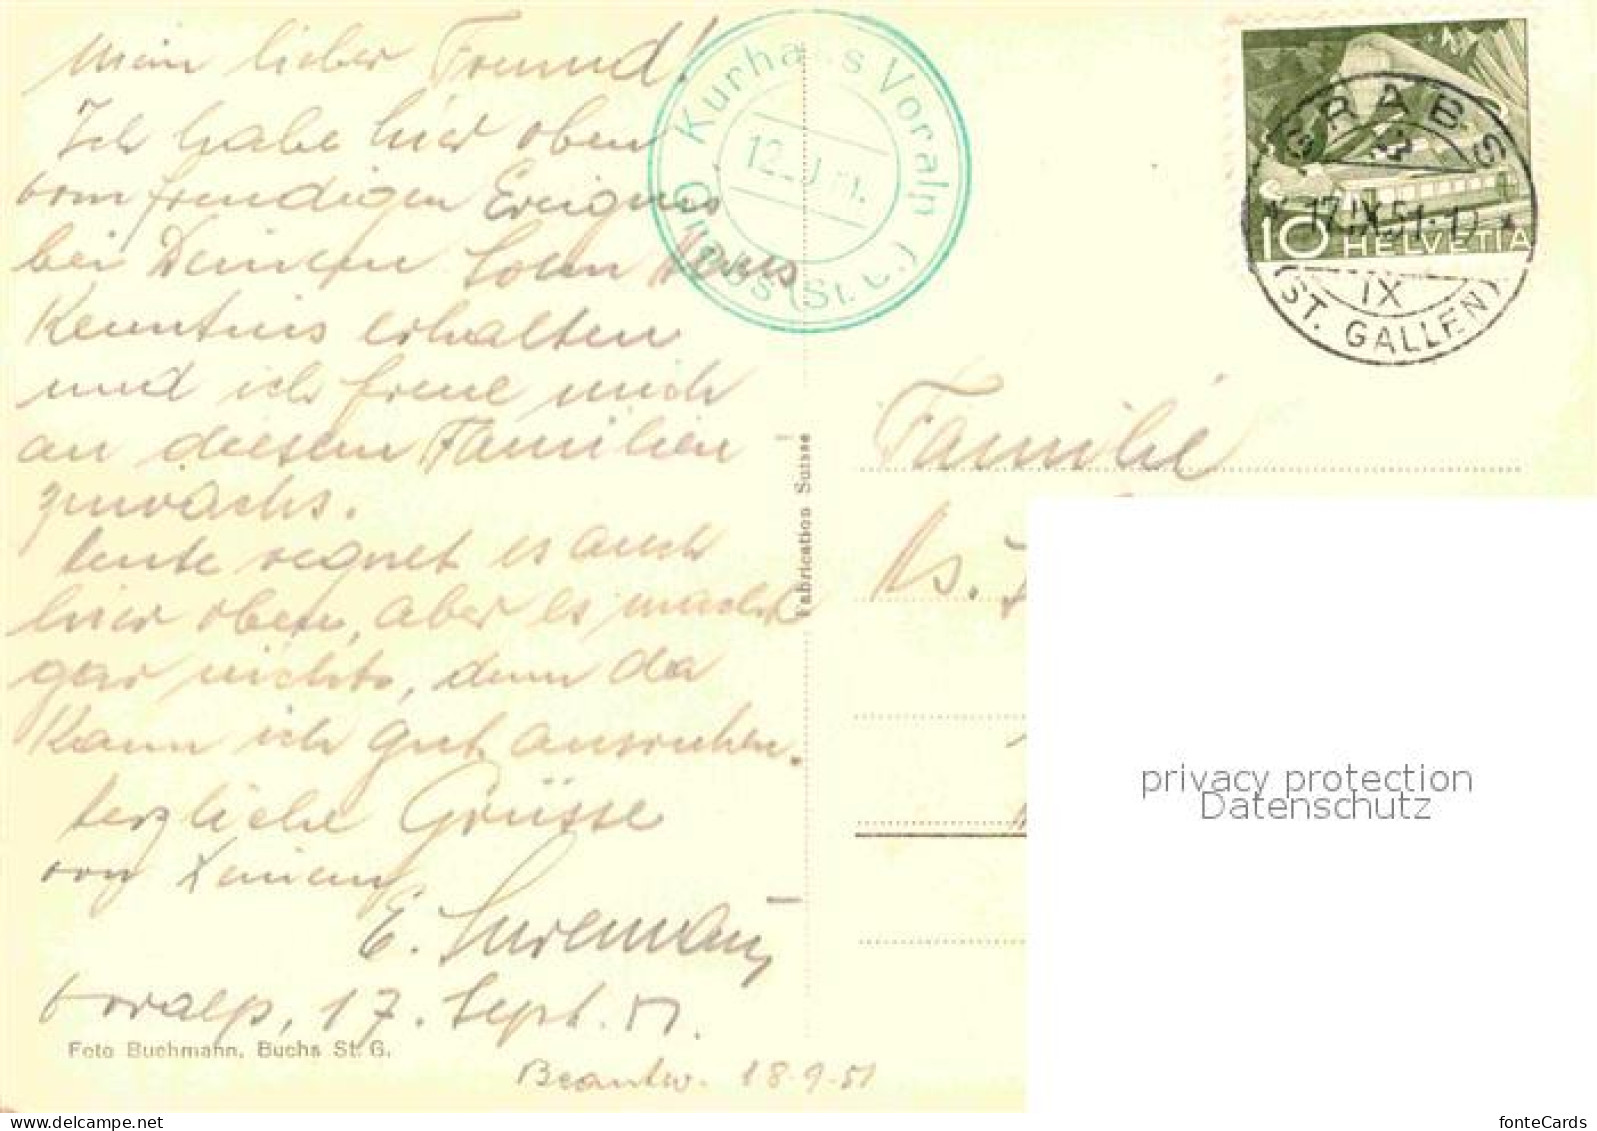 Mein lieber Freund!
Ich habe hier oben
vom freudigen Ereignis
bei Deinem Sohn Hans
Kenntnis erhalten
und ich freue mich
an diesem Familien
zuwachs.
Heute regnet es auch
hier oben, aber es macht
gar nichts, denn da
kann ich gut ausruhen.
Herzliche Grüsse
von
E.
Voralp, 17. Sept. 51.
Foto Buchmann, Buchs St. G.
Beantw. 18.9.51
Kurhaus Voralp
12
Grabs (St. G.)
Fabrication Suisse
GRABS
17.IX.51
IX
(ST. GALLEN)
10 HELVETIA
Familie
privacy protection
Datenschutz
fonteCards